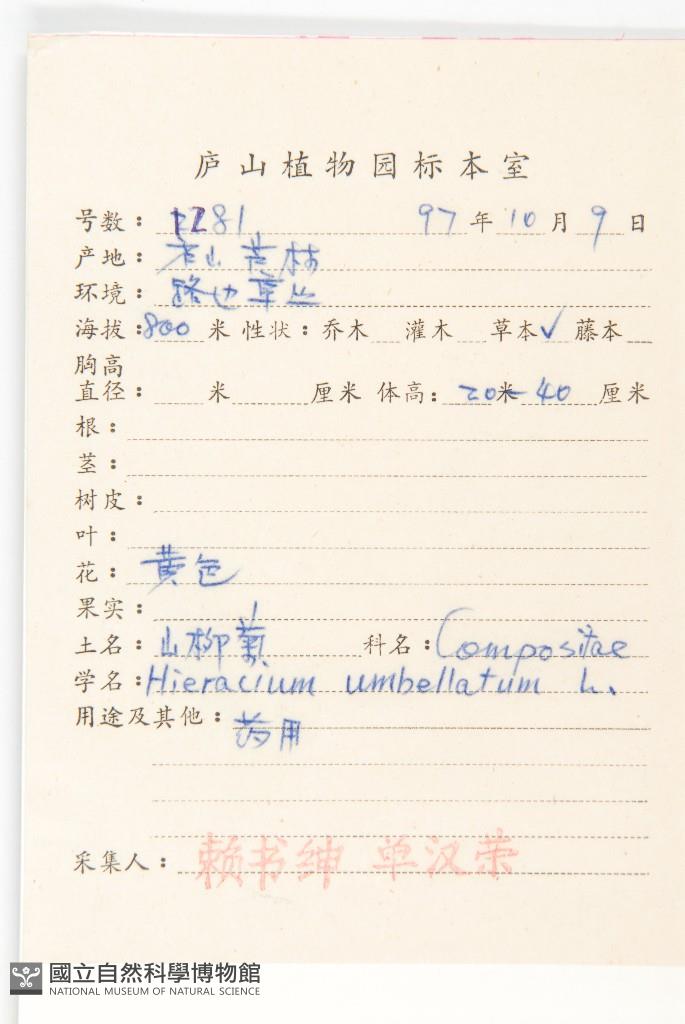 庐山植物园标本室
号数：1281 97年10月9日
产地：庐山芦林
环境：路边草丛
海拔：800米 性状：乔木 灌木 草本✓ 藤本
胸高
直径： 米 厘米 体高：20米-40厘米
根：
茎：
树皮：
叶：
花：黄色
果实：
土名：山柳菊 科名：Compositae
学名：Hieracium umbellatum L.
用途及其他：药用
采集人：赖书绅 单汉荣
國立自然科學博物館
NATIONAL MUSEUM OF NATURAL SCIENCE